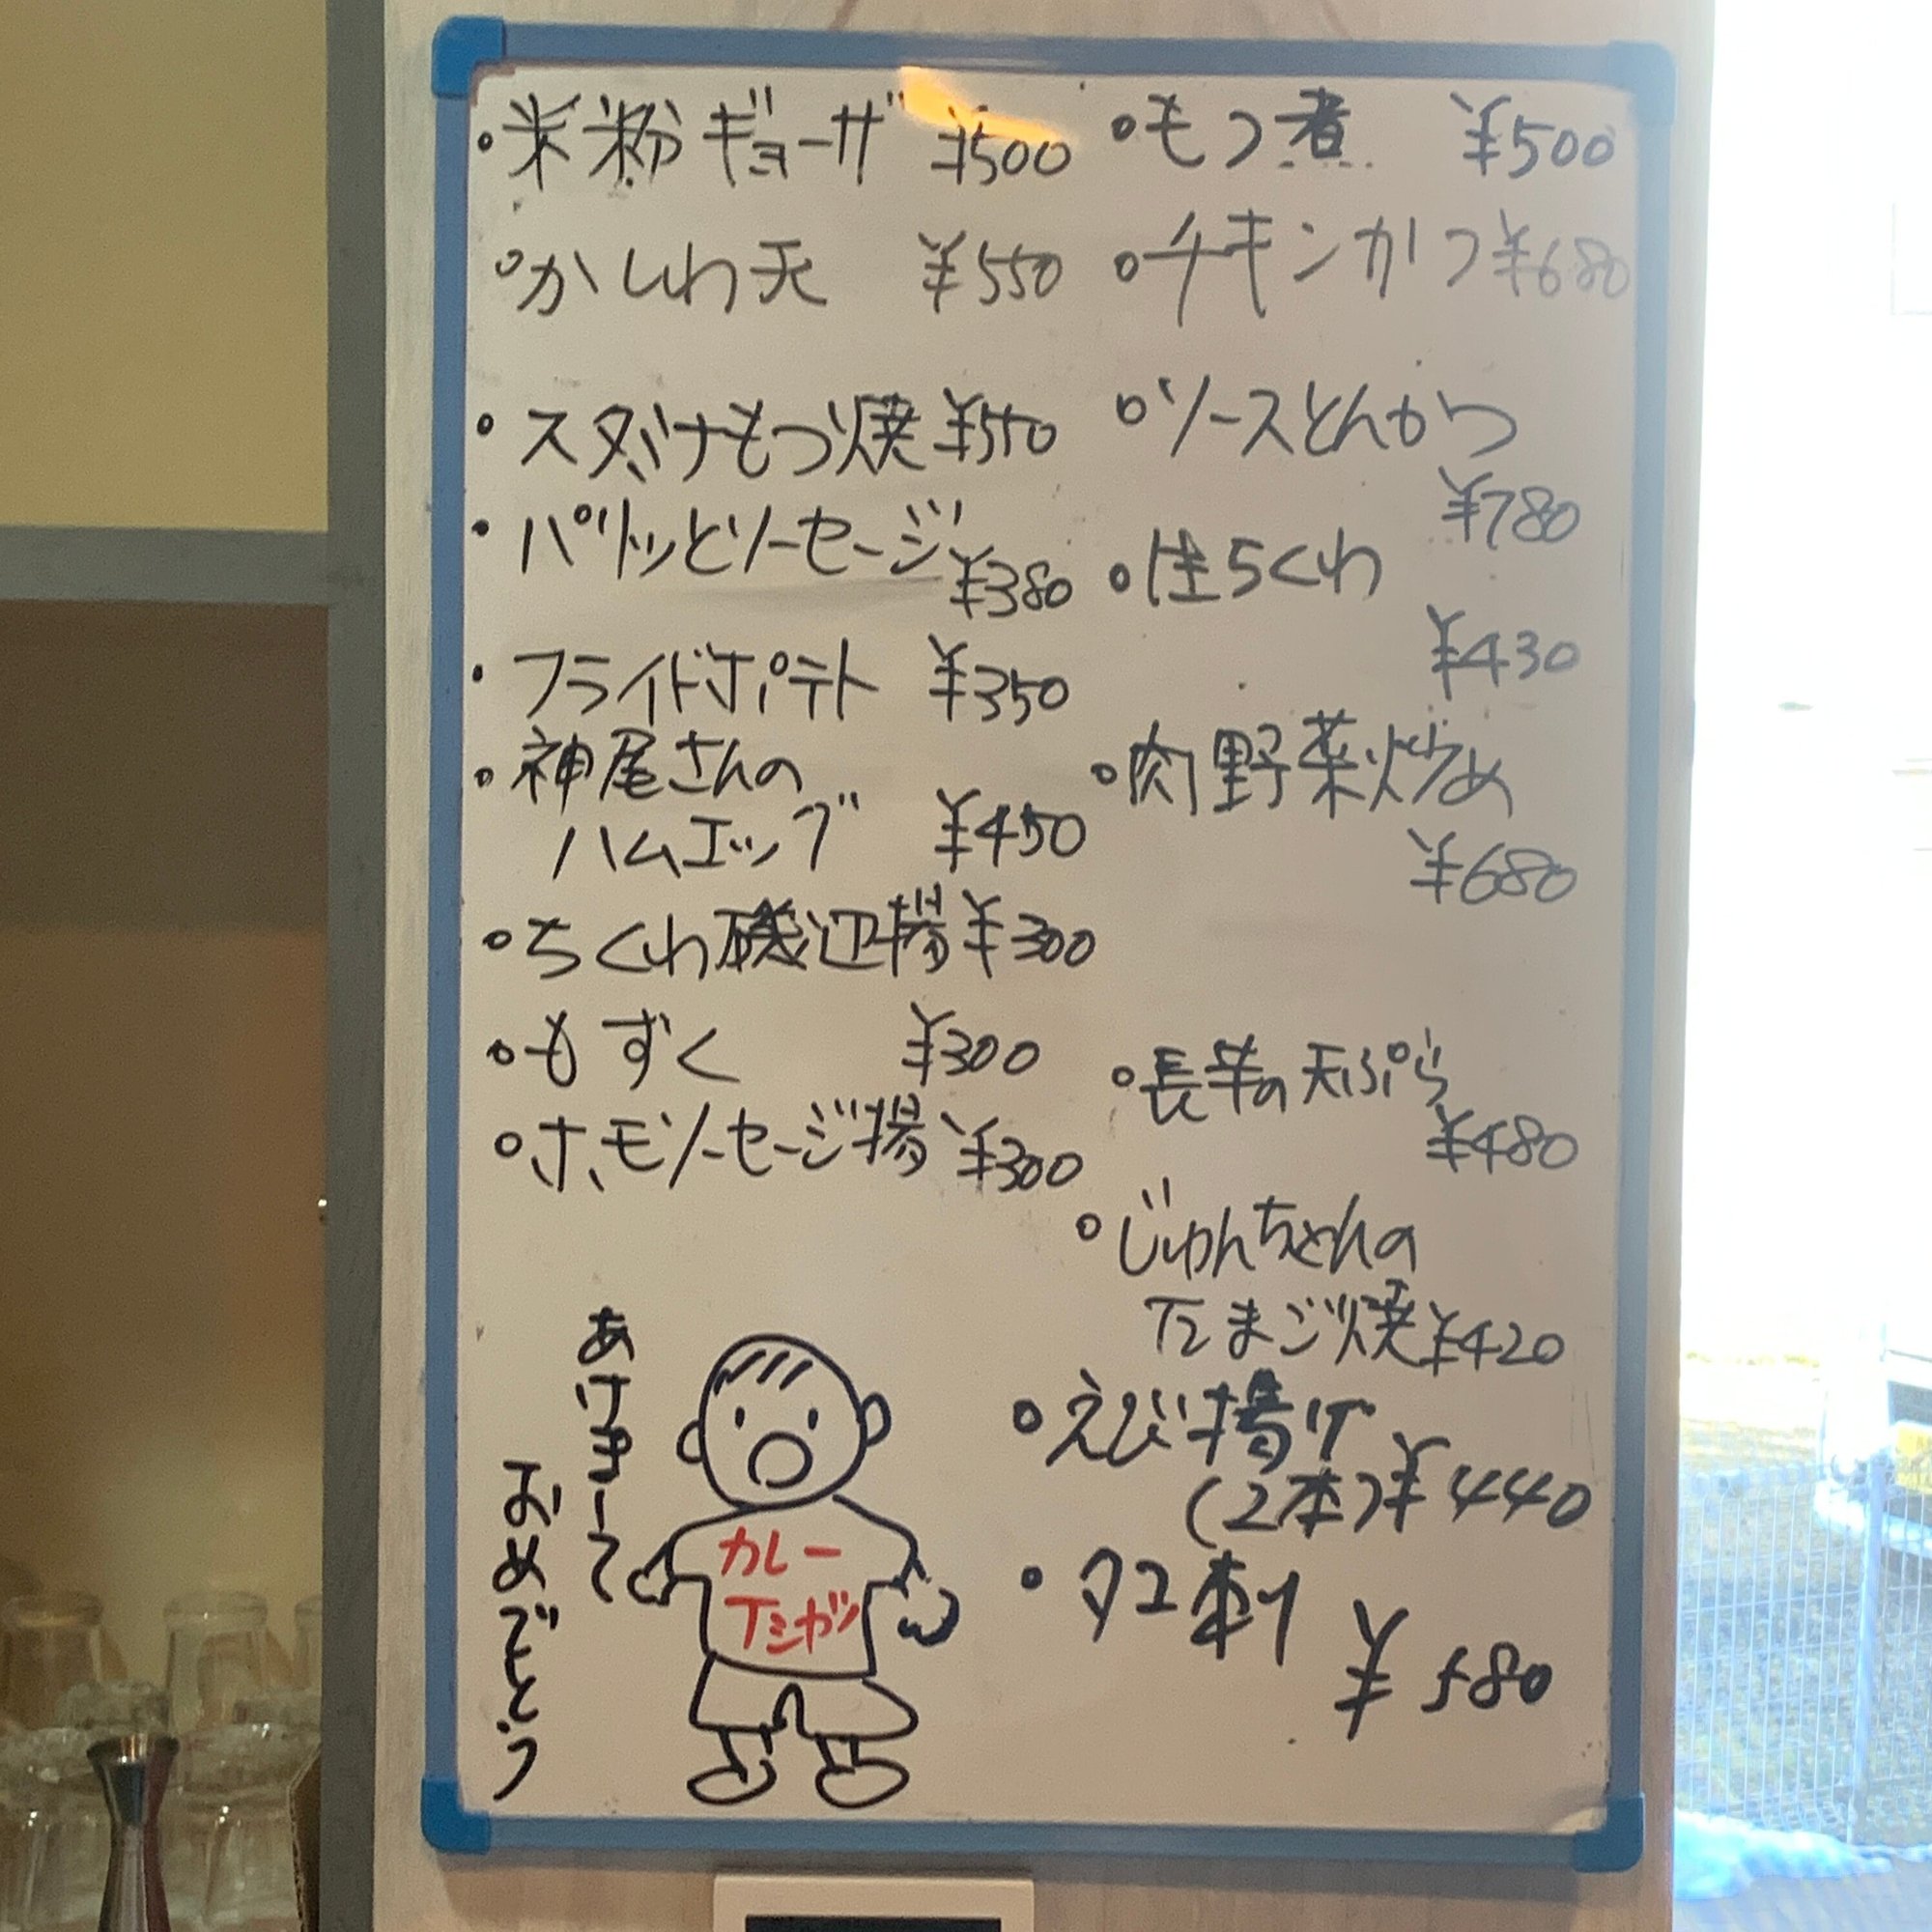 ・米粉ギョーザ ¥500
・かしわ天 ¥550
・スタミナもつ焼 ¥550
・パリッとソーセージ
¥380
・フライドポテト ¥350
・神尾さんの
ハムエッグ ¥450
・ちくわ磯辺揚 ¥300
・もずく ¥300
・ホモソーセージ揚 ¥300
・もつ煮 ¥500
・チキンかつ ¥680
・ソースとんかつ
¥780
・生ちくわ
¥430
・肉野菜炒め
¥680
・長芋の天ぷら
¥480
・じゅんちゃんの
たまご焼 ¥420
・えび揚げ
(2本) ¥440
・タコ刺
¥580
あけまして
おめでとう
カレー
Tシャツ